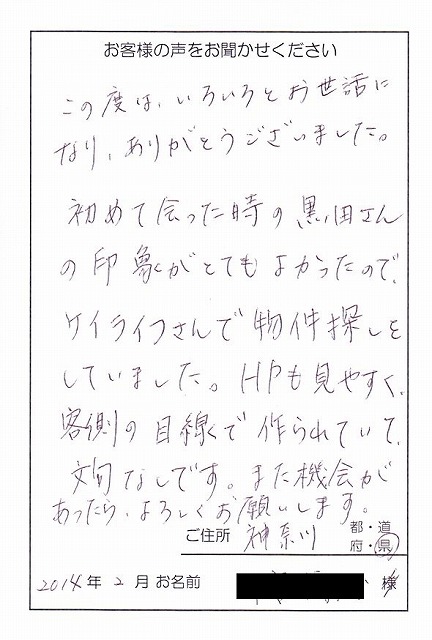 お客様の声をお聞かせください
この度は、いろいろとお世話に
なり、ありがとうございました。
初めて会った時の黒田さん
の印象がとてもよかったので、
ケイライフさんで物件探しを
していました。HPも見やすく、
客側の目線で作られていて、
文句なしです。また機会が
あったら、よろしくお願いします。
ご住所 神奈川 都・道
府・県
2014年2月 お名前 様